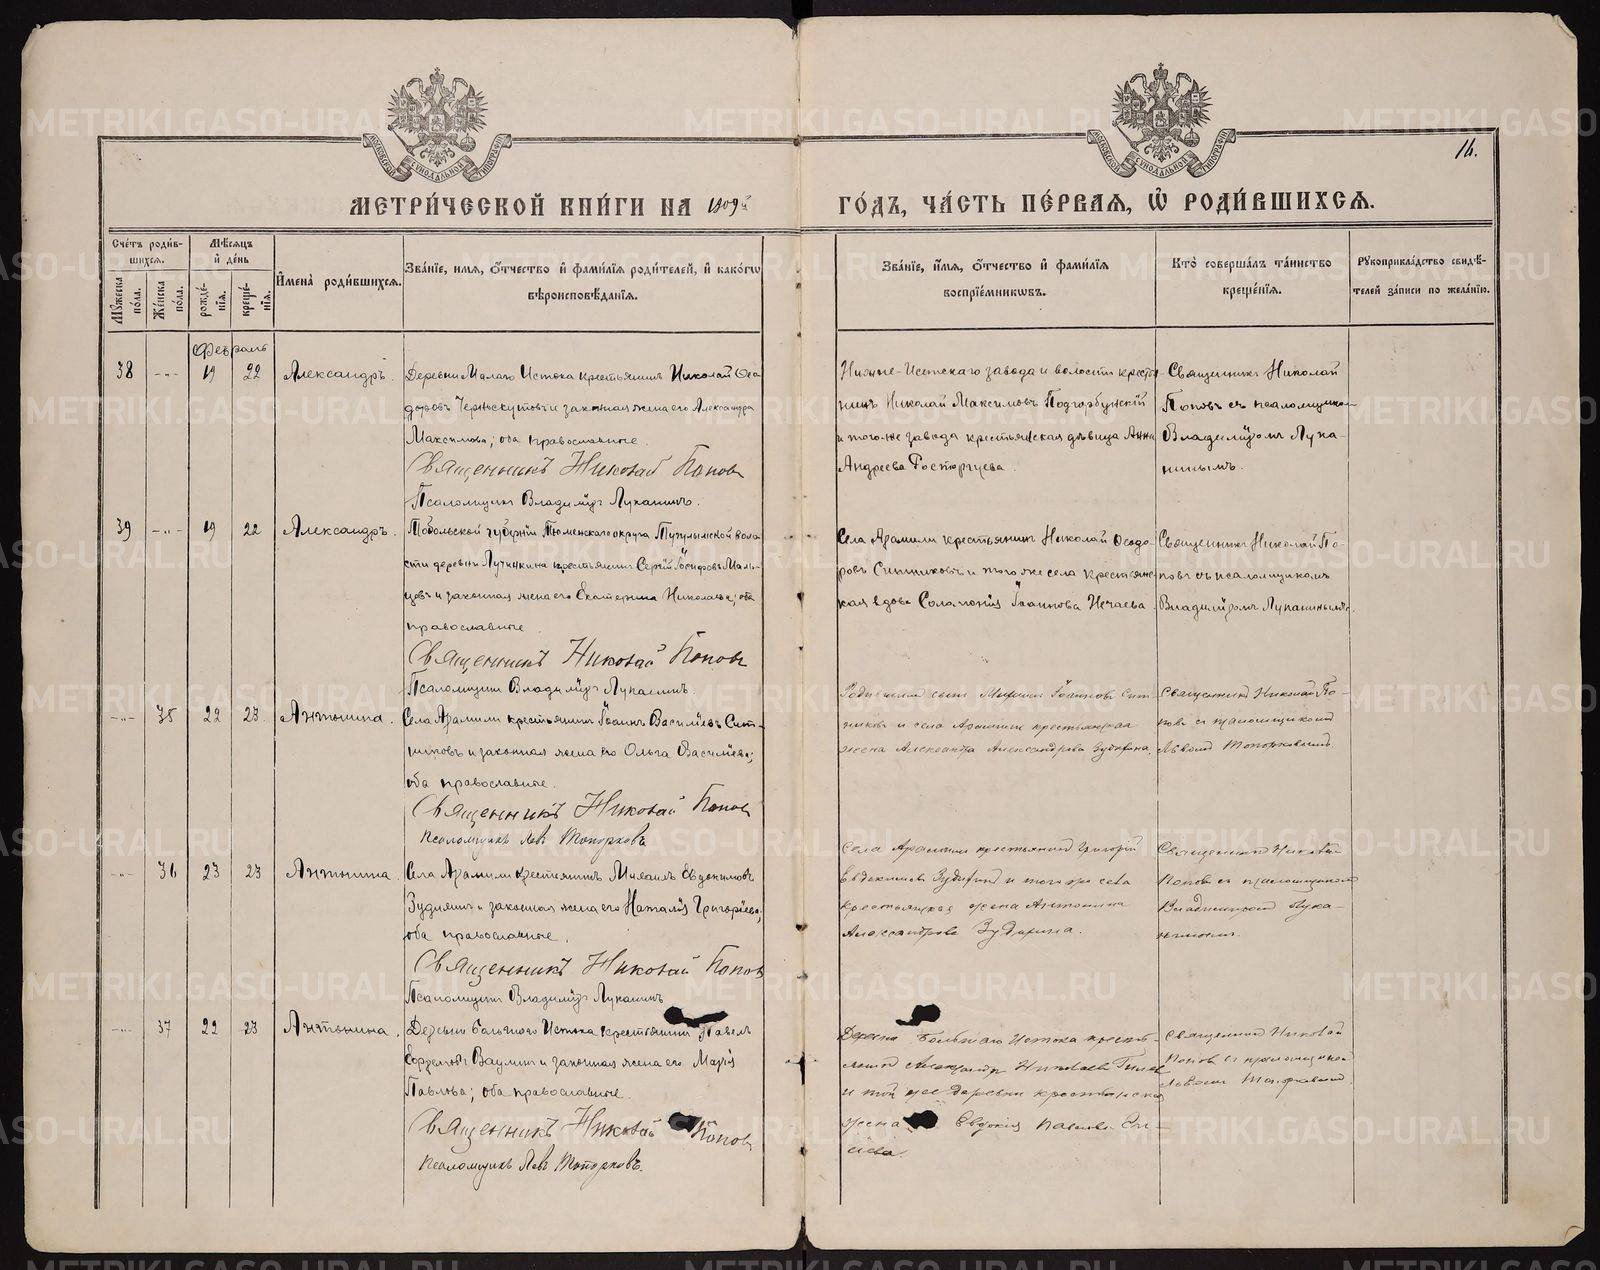 МОСКОВСКОЙ СѴНОДАЛЬНОЙ ТИПОГРАФІИ
МОСКОВСКОЙ СѴНОДАЛЬНОЙ ТИПОГРАФІИ
16.
МЕТРИ́ЧЕСКОЙ КНИ́ГИ НА 1909й
ГО́ДЪ, ЧА́СТЬ ПЕ́РВАѦ, Ѡ҆ РОДИ́ВШИХСѦ.
Сче́тъ роди́вшихсѧ.
Мꙋ́жеска по́ла.
Же́нска по́ла.
Мѣ́сѧцъ и҆ де́нь
рожде́нїѧ.
креще́нїѧ.
И҆мена̀ роди́вшихсѧ.
Зва́нїе, имѧ, ѻ҆́тчество и҆ фами́лїѧ роди́телей, и҆ како́гѡ
вѣроисповѣ́данїѧ.
Зва́нїе, и҆́мѧ, ѻ҆́тчество и҆ фами́лїѧ
воспрїе́мникѡвъ.
Кто̀ соверша́лъ та́инство
креще́нїѧ.
Рꙋкоприкла́дство свидѣ́-
телей за́писи по жела́нїю.
Февраль
38 -„- 19 22 Александръ.
Деревни Малаго Истока крестьянинъ Николай Ѳео-
доровъ Черноскутовъ и законная жена его Александра
Максимова; оба православные.
Священникъ Николай Поповъ
Псаломщикъ Владимiръ Луканинъ.
Нижне-Исетскаго завода и волости кресть-
янинъ Николай Максимовъ Подгорбунскій
и того-же завода крестьянская дѣвица Анна
Андреева Расторгуева.
Священникъ Николай
Поповъ съ псаломщикомъ
Владимiромъ Лука-
нинымъ.
39 -„- 19 22 Александръ.
Тобольской губерніи Тюменскаго округа Тугулымской воло-
сти деревни Лучинкина крестьянинъ Сергій Іосифовъ Маль-
цевъ и законная жена его Екатерина Николаева; оба
православные.
Священникъ Николай Поповъ
Псаломщикъ Владимiръ Луканинъ.
Села Арамили крестьянинъ Николай Ѳеодо-
ровъ Ситниковъ и того же села крестьянс-
кая вдова Соломонія Іоаннова Нечаева.
Священникъ Николай По-
повъ съ псаломщикомъ
Владимiромъ Луканинымъ.
-„- 35 22 23 Антонина.
Села Арамили крестьянинъ Іоаннъ Василіевъ Сит-
никовъ и законная жена его Ольга Василіева;
оба православные.
Священникъ Николай Поповъ
Псаломщикъ Левъ Топорковъ
Іоаннова Сит-
никовъ и села Арамили крестьянская
жена Александра Александрова Зудихина.
Священникъ Николай По-
повъ съ псаломщикомъ
Львомъ Топорковымъ.
-„- 36 23 23 Антонина.
Села Арамили крестьянинъ Михаилъ Евдокимовъ
Зудихинъ и законная жена его Наталія Григоріева;
оба православные.
Священникъ Николай Поповъ
Псаломщикъ Владимiръ Луканинъ
Села Арамили крестьянинъ Григорій
Евдокимовъ Зудихинъ и того же села
крестьянская жена Антонина
Александрова Зудихина.
Священникъ Николай
Поповъ съ псаломщикомъ
Владимiромъ Лука-
нинымъ.
-„- 37 22 23 Антонина.
Деревни Большого Истока крестьянинъ Павелъ
Ефремовъ Ваулинъ и законная жена его Марія
Павлова; оба православные.
Священникъ Николай Поповъ
Псаломщикъ Левъ Топорковъ.
Деревни Большаго Истока кресть-
янинъ Александръ Николаевъ
и той же деревни крестьянская
жена Евдокія Павлова
Священникъ Николай
Поповъ съ псаломщикомъ
Львомъ Топорковымъ.
METRIKI.GASO-URAL.RU